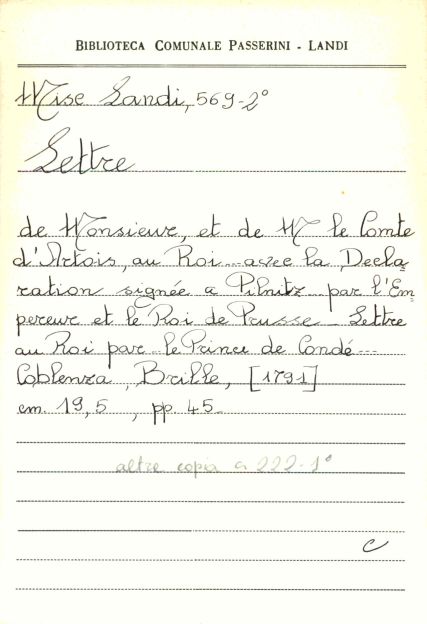 BIBLIOTECA COMUNALE PASSERINI - LANDI
Mise Landi, 569-2°
Lettre
de Monsieur, et de M le Comte
d'Artois, au Roi avec la Decla
ration signée a Pilnitz par l'Em
pereur et le Roi de Prusse - Lettre
au Roi par le Prince de Condé---
Coblenza, Brille, [1791]
cm 19,5, pp. 45
altre copia a 222-1°
C